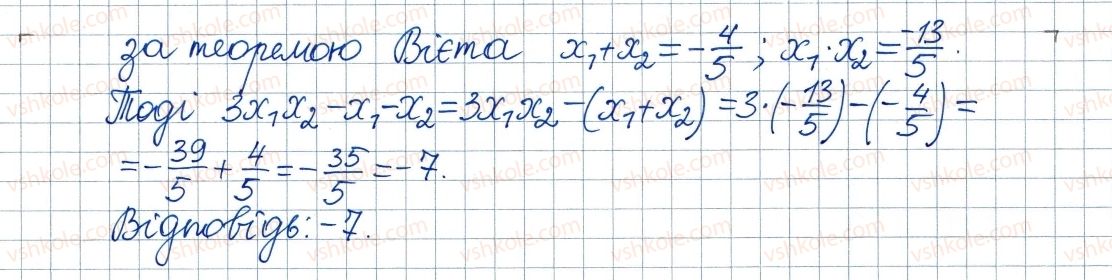 за теоремою Вієта x₁+x₂=-4/5; x₁·x₂=-13/5.
Тоді 3x₁x₂-x₁-x₂=3x₁x₂-(x₁+x₂)=3·(-13/5)-(-4/5)=
=-39/5+4/5=-35/5=-7.
Відповідь: -7.